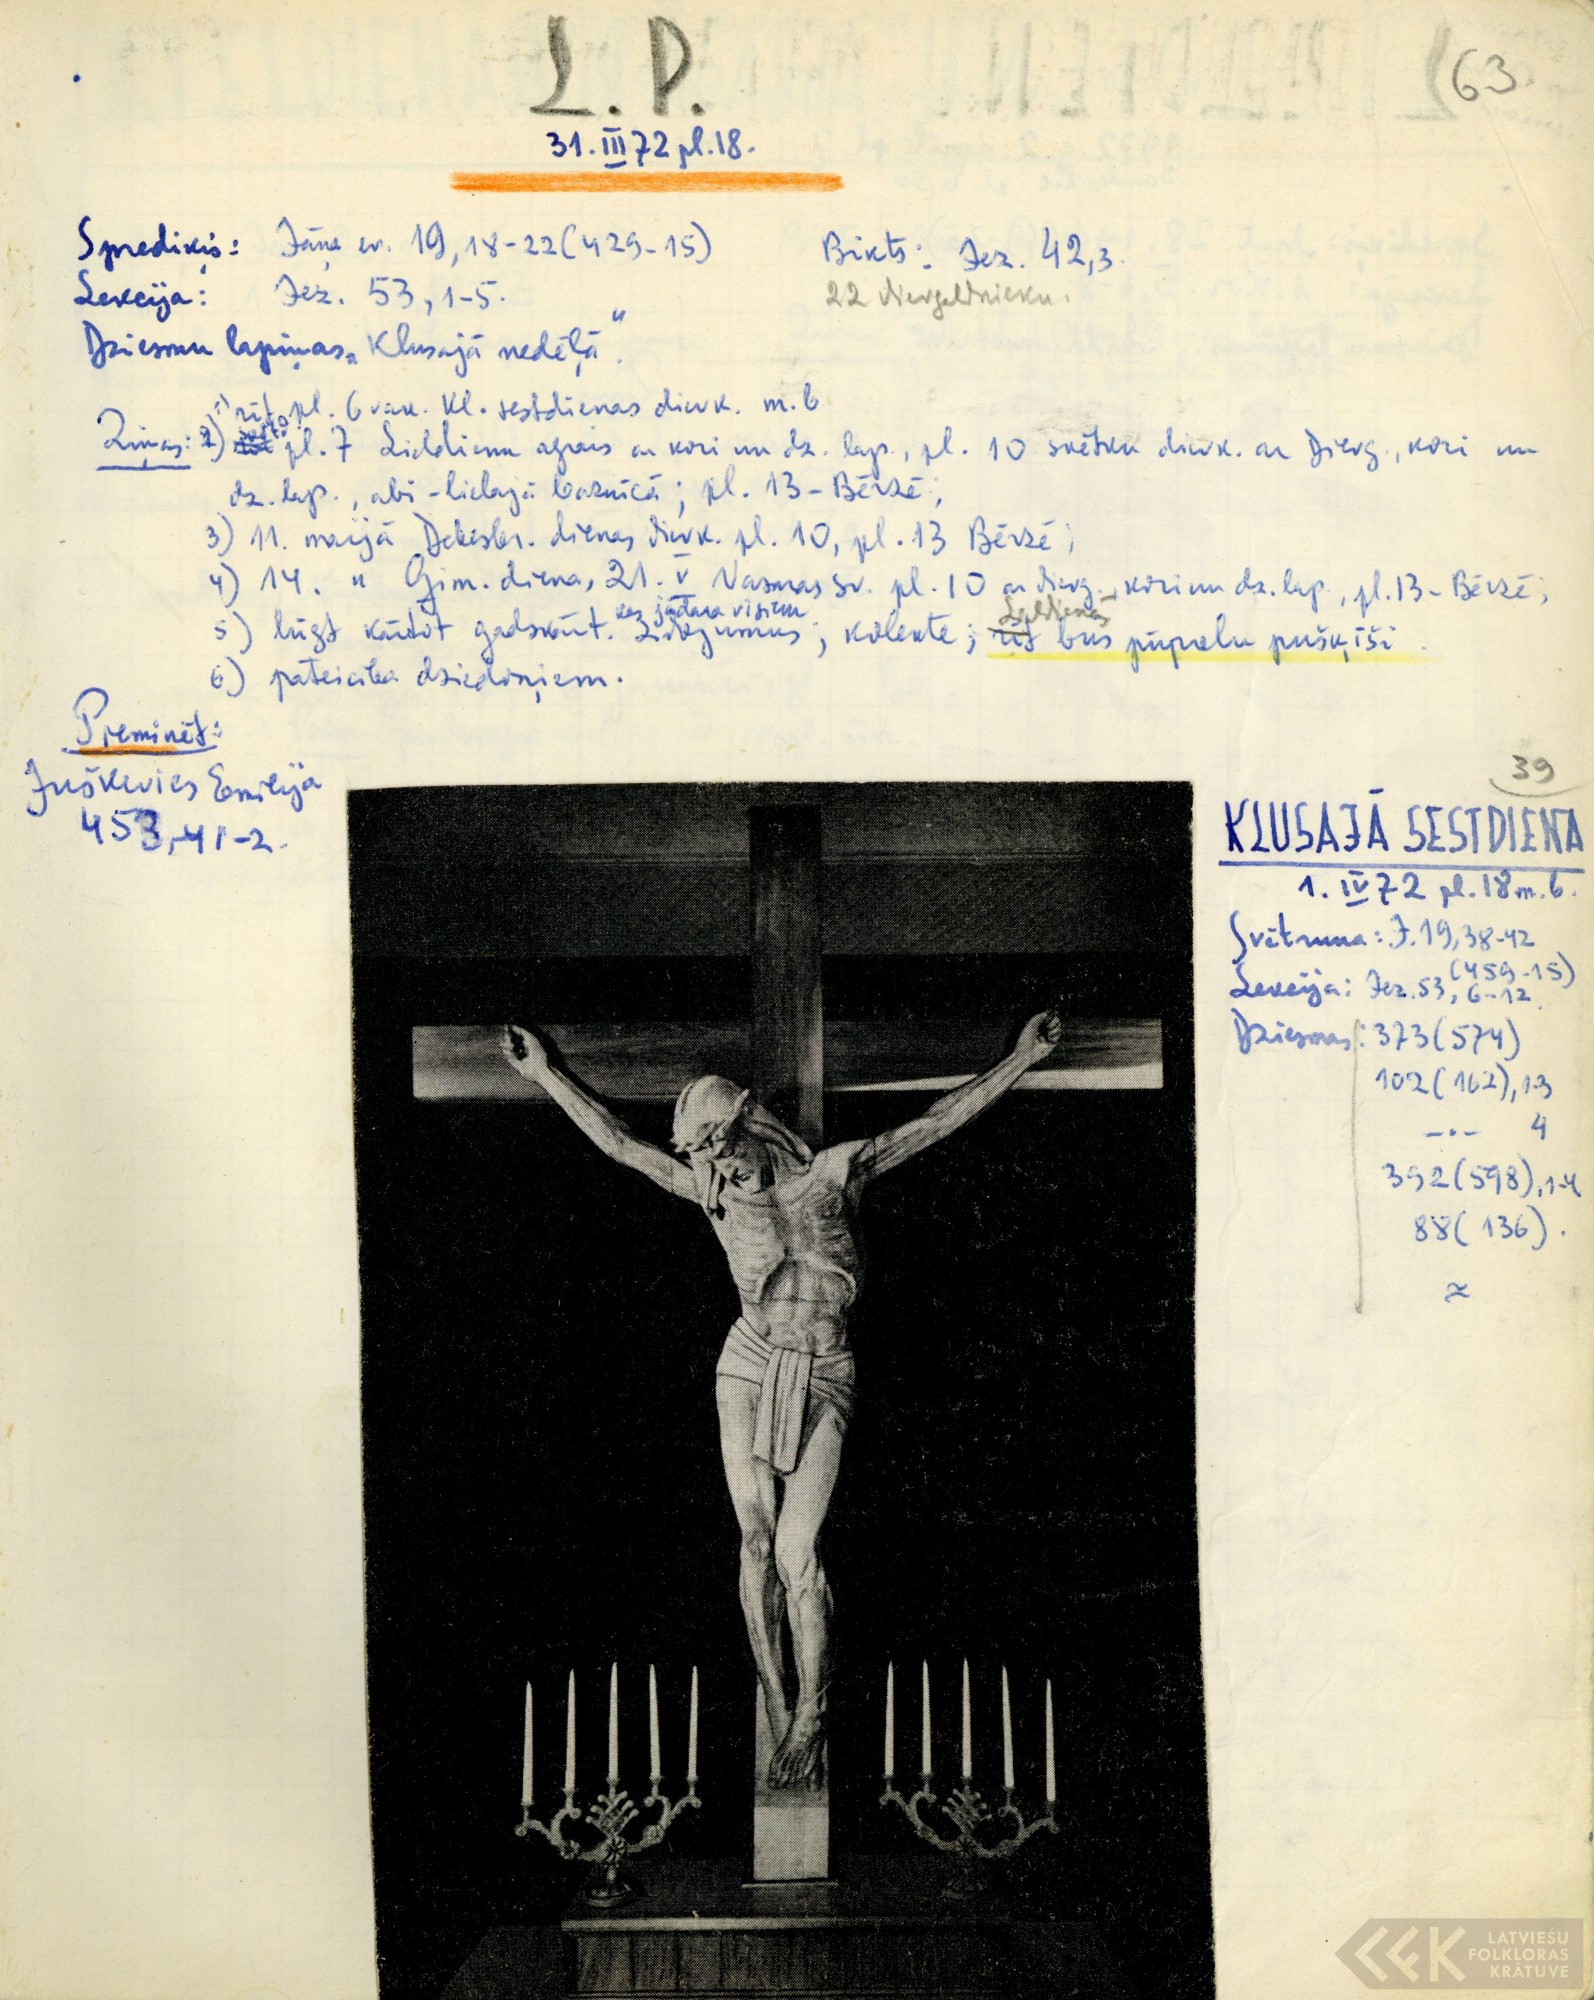 L. P.
63
31. III 72 pl. 18.
Spredikis: Jāņa ev. 19, 18-22 (429-15)
Bikts: Jez. 42,3.
Lekcija: Jez. 53, 1-5.
22 dievgaldnieku.
Dziesmu lapiņas „Klusajā nedēļā".
Ziņas: 1) rīt pl. 6 vak. Kl. sestdienas dievk. m. b
2) pl. 7 Lieldienu agrais ar kori un dz. lap., pl. 10 svētku dievk. ar Dievg., kori un
dz. lap., abi - lielajā baznīcā; pl. 13 - Bērzē;
3) 11. maijā Debesbr. dienas dievk. pl. 10, pl. 13 Bērzē;
4) 14. " Ģim. diena, 21. V Vasaras sv. pl. 10 ar dievg., kori un dz. lap., pl. 13 - Bērzē;
kas jādara visiem
Lieldienās
5) lūgt kārtot gadskārt. ziedojumus; kolekte; rīt būs pūpolu pušķīši.
6) pateicība dziedoņiem.
Pieminēt:
Juškevics Emilija
453, 41-2.
39
KLUSAJĀ SESTDIENA
1. IV 72 pl. 18 m. b.
Svētruna: J. 19, 38-42
(459-15)
Lekcija: Jez. 53, 6-12.
Dziesmas: 373 (574)
102 (162), 1-3
-.- 4
392 (598), 1-4
88 (136).
≈
LATVIEŠU
FOLKLORAS
KRĀTUVE